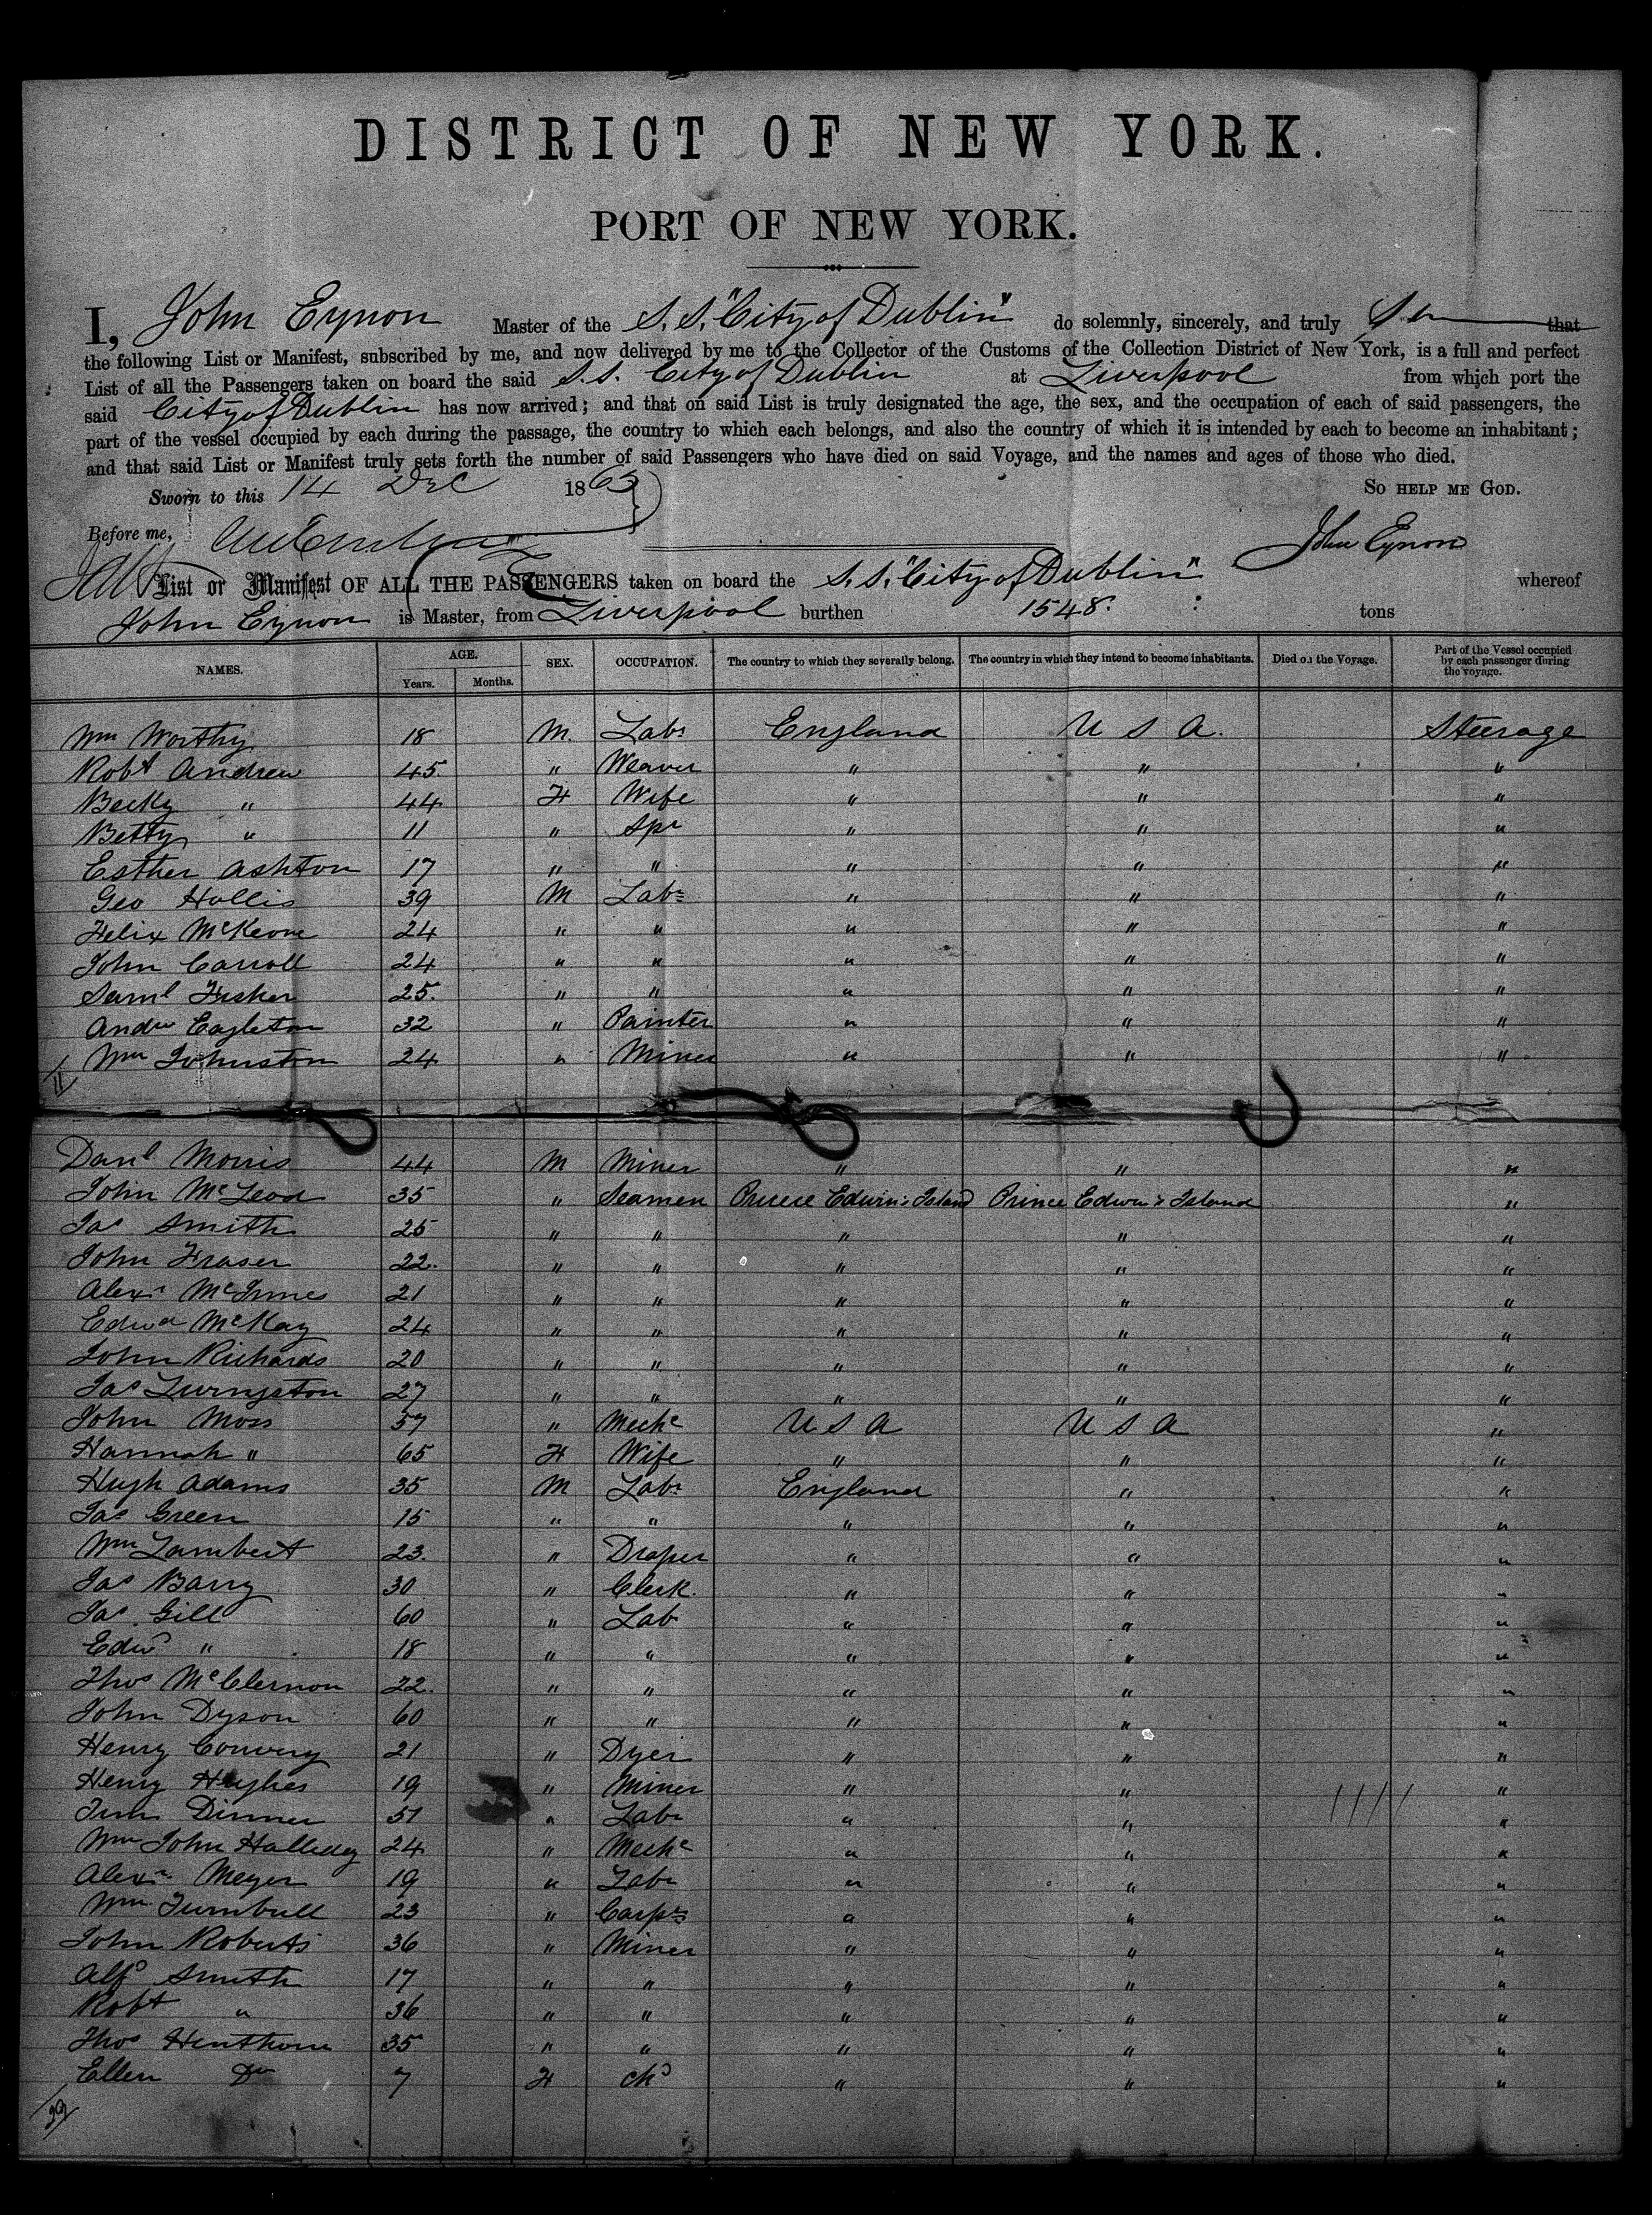 DISTRICT OF NEW YORK.
PORT OF NEW YORK.
I, John Eynon Master of the S.S. "City of Dublin" do solemnly, sincerely, and truly that
the following List or Manifest, subscribed by me, and now delivered by me to the Collector of the Customs of the Collection District of New York, is a full and perfect
List of all the Passengers taken on board the said S.S. City of Dublin at Liverpool from which port the
said City of Dublin has now arrived; and that on said List is truly designated the age, the sex, and the occupation of each of said passengers, the
part of the vessel occupied by each during the passage, the country to which each belongs, and also the country of which it is intended by each to become an inhabitant;
and that said List or Manifest truly sets forth the number of said Passengers who have died on said Voyage, and the names and ages of those who died.
Sworn to this 14 Dec 186 SO HELP ME GOD.
Before me, John Eynon
List or Manifest OF ALL THE PASSENGERS taken on board the S.S. "City of Dublin" whereof
John Eynon is Master, from Liverpool burthen 1548 tons
NAMES. AGE. Years. Months. SEX. OCCUPATION. The country to which they severally belong. The country in which they intend to become inhabitants. Died on the Voyage. Part of the Vessel occupied by each passenger during the voyage.
Wm Worthy 18 M. Labr England U S A. Steerage
Robt Andrew 45 " Weaver " " "
Becky " 44 F Wife " " "
Betty " 11 " Spr " " "
Esther Ashton 17 " " " " "
Geo Hollis 39 M Labr " " "
Felix McKeone 24 " " " " "
John Carroll 24 " " " " "
Saml Fisher 25. " " " " "
Andw Eagleton 32 " Painter " " "
Wm Johnston 24 " Miner " " "
11
Danl Morris 44 M Miner " " "
John McLeod 35 " Seamen Prince Edwin's Island Prince Edwin's Island "
Jas Smith 25 " " " " "
John Fraser 22. " " " " "
Alexr McInnes 21 " " " " "
Edwd McKay 24 " " " " "
John Richards 20 " " " " "
Jas Livingston 27 " " " " "
John Moss 57 " Mechc U S A U S A "
Hannah " 65 F Wife " " "
Hugh Adams 35 M Labr England " "
Jas Green 15 " " " " "
Wm Lambert 23. " Draper " " "
Jas Barry 30 " Clerk. " " "
Jas Gill 60 " Lab " " "
Edwd " 18 " " " " "
Thos McClernon 22. " " " " "
John Dyson 60 " " " " "
Henry Convery 21 " Dyer " " "
Henry Hughes 19 " Miner " " "
Dinner 51 " Labr " " "
Wm John Halliday 24 " Mechc " " "
Alexr Meyer 19 " Labr " " "
Wm Turnbull 23 " Carpr " " "
John Roberts 36 " Miner " " "
Alfd Smith 17 " " " " "
Robt " 36 " " " " "
Thos Henthorn 35 " " " " "
Ellen Do 7 F chd " " "